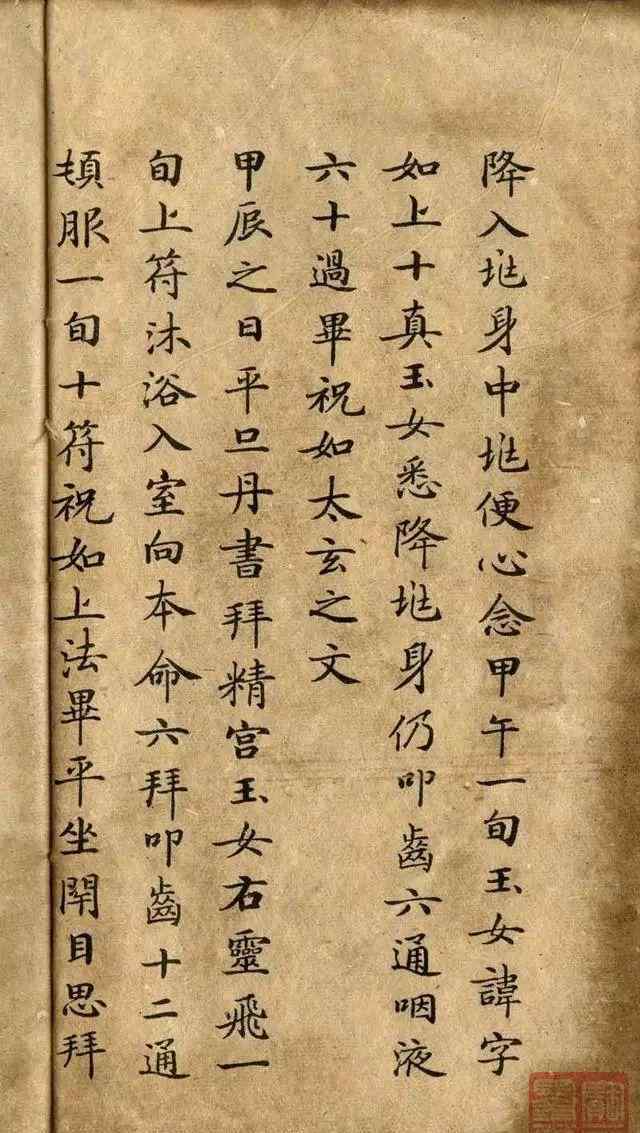 降入兆身中兆便心念甲午一旬玉女諱字
如上十真玉女悉降兆身仍叩齒六通咽液
六十過畢祝如太玄之文
甲辰之日平旦丹書拜精宮玉女右靈飛一
旬上符沐浴入室向本命六拜叩齒十二通
頓服一旬十符祝如上法畢平坐閉目思拜